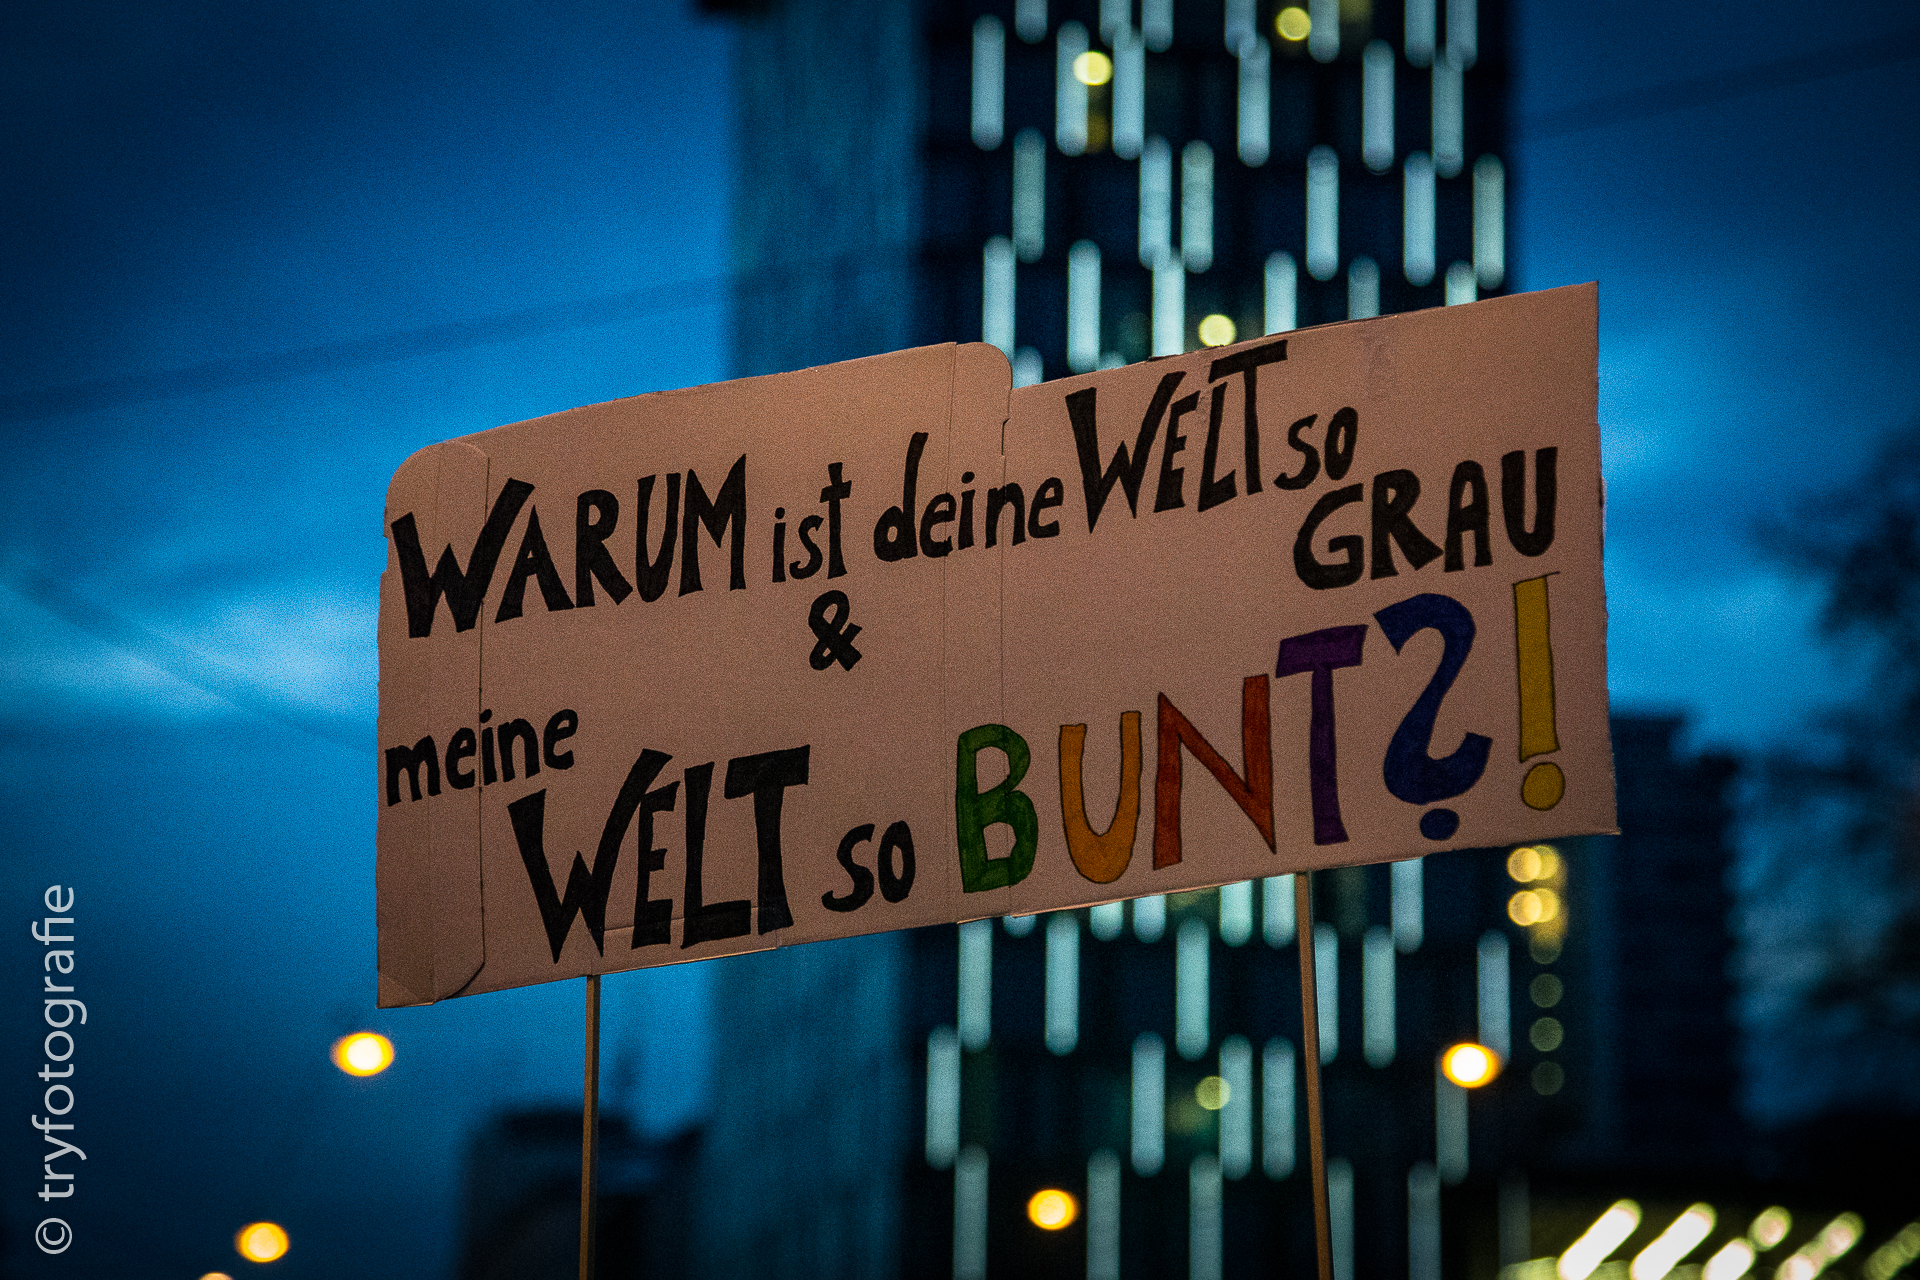 WARUM ist deine WELT so
GRAU
&
meine
WELT so BUNT?!
© tryfotografie